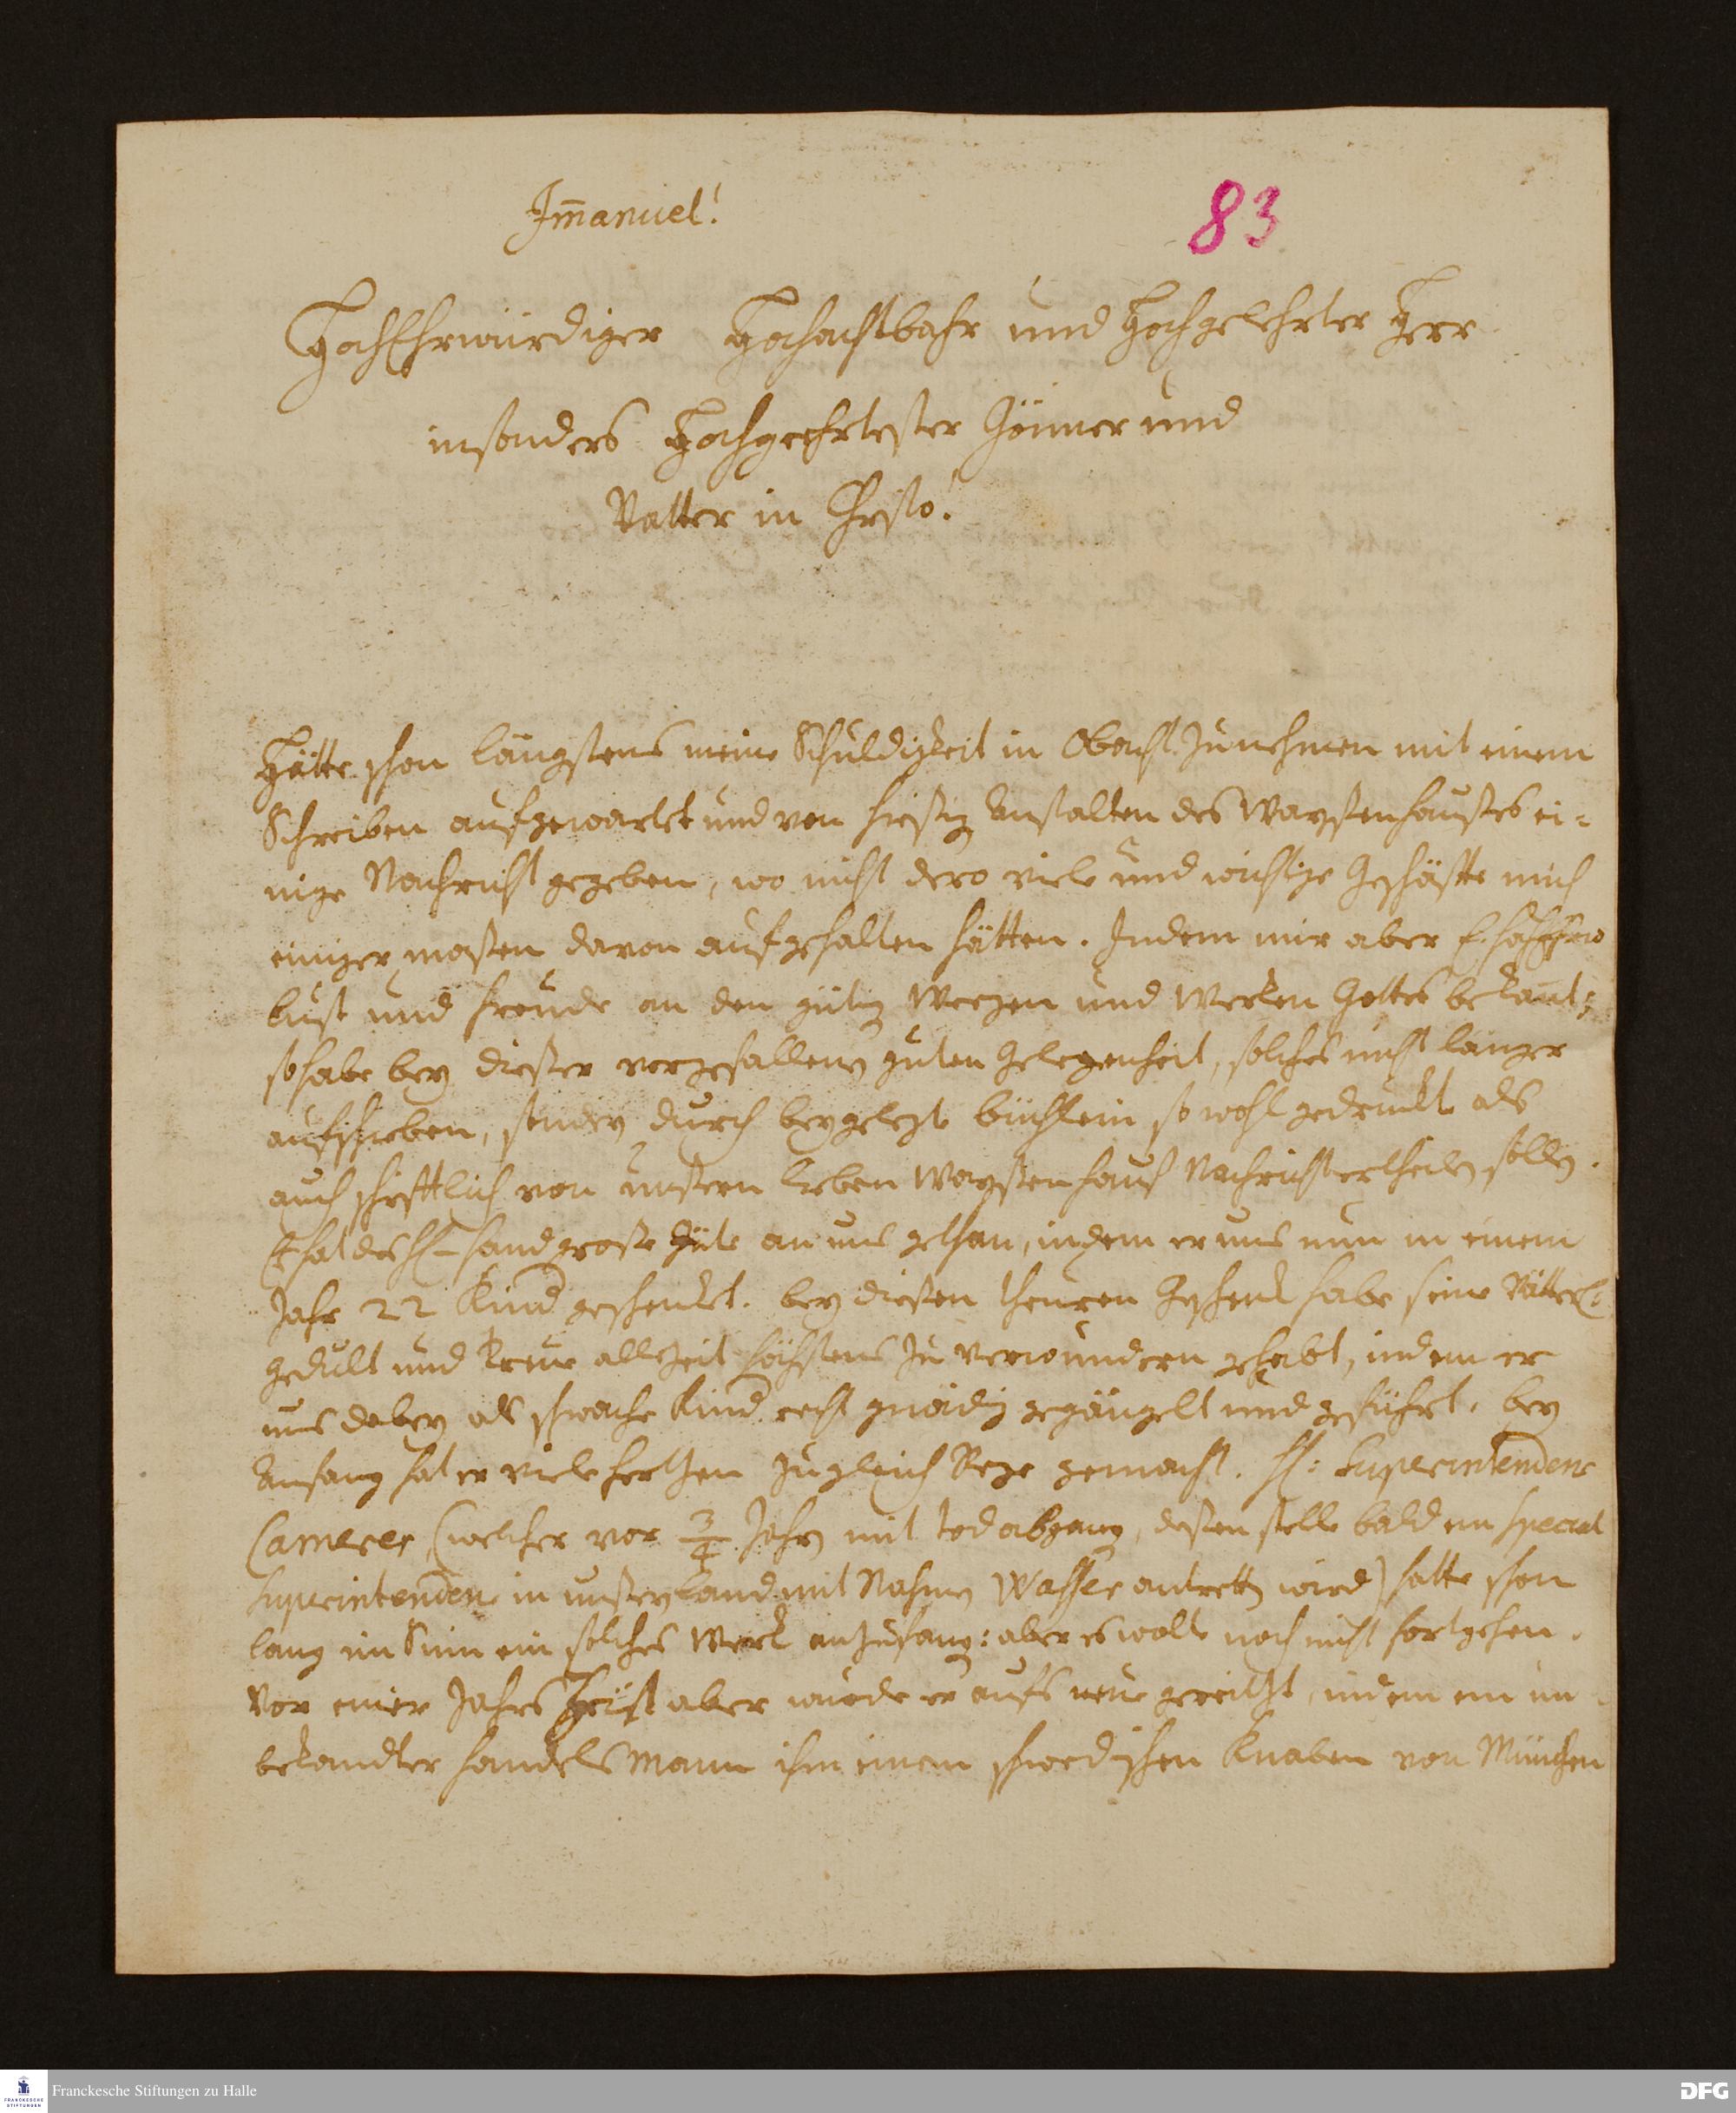 Im̅anuel!
83
HochEhrwürdiger Hochachtbahr und Hochgelehrter Herr
insonders Hochgeehrtester Gönner und
Vatter in Christo!
Hätte schon längstens meine Schuldigkeit in Obacht zu nehmen mit einem
Schreiben aufgewartet und von hiesig Anstalten des Waysenhauses ei-
nige Nachricht gegeben, wo nicht dero viele und wichtige Geschäffte mich
einiger maßen davon aufgehalten hätten. Indem mir aber E.
Lust und Freude an den gütig Weegen und Wercken Gottes bekant;
so habe bey dieser vorgefallenen guten Gelegenheit, solches nicht länger
aufschieben, sondern durch beygelegte büchlein so wohl gedruckt als
auch schrifftlich von unserm lieben Waysenhauß Nachricht ertheilen sollen.
Es hat des H. Hand große Güte an uns gethan, indem er uns nun in einem
Jahr 22 Kind geschenckt. bey diesem theuren Geschenck habe seine Vätterl.
gedult und treue allezeit höchstens zu verwundern gehabt, indem er
uns dabey als schwache Kind recht gnädig gegängelt und geführt. bey
Anfang hat er viele Hertzen zugleich Rege gemacht. H: Superintendens
Camerer (welcher vor 3/4 Jahr mit tod abgang, deßen stelle bald ein Special
Superintendens in unserm Land mit Nahmen Wasser antretten wird) hatte schon
lang im Sinn ein solches Werck anzufang: aber es wolte noch nicht fortgehen.
Vor einer Jahrs Frist aber wurde er aufs neue gereitzt, indem ein un-
bekandter Handels Mann ihm einen schwedischen Knaben von München
Franckesche Stiftungen zu Halle
FRANCKESCHE
STIFTUNGEN
DFG